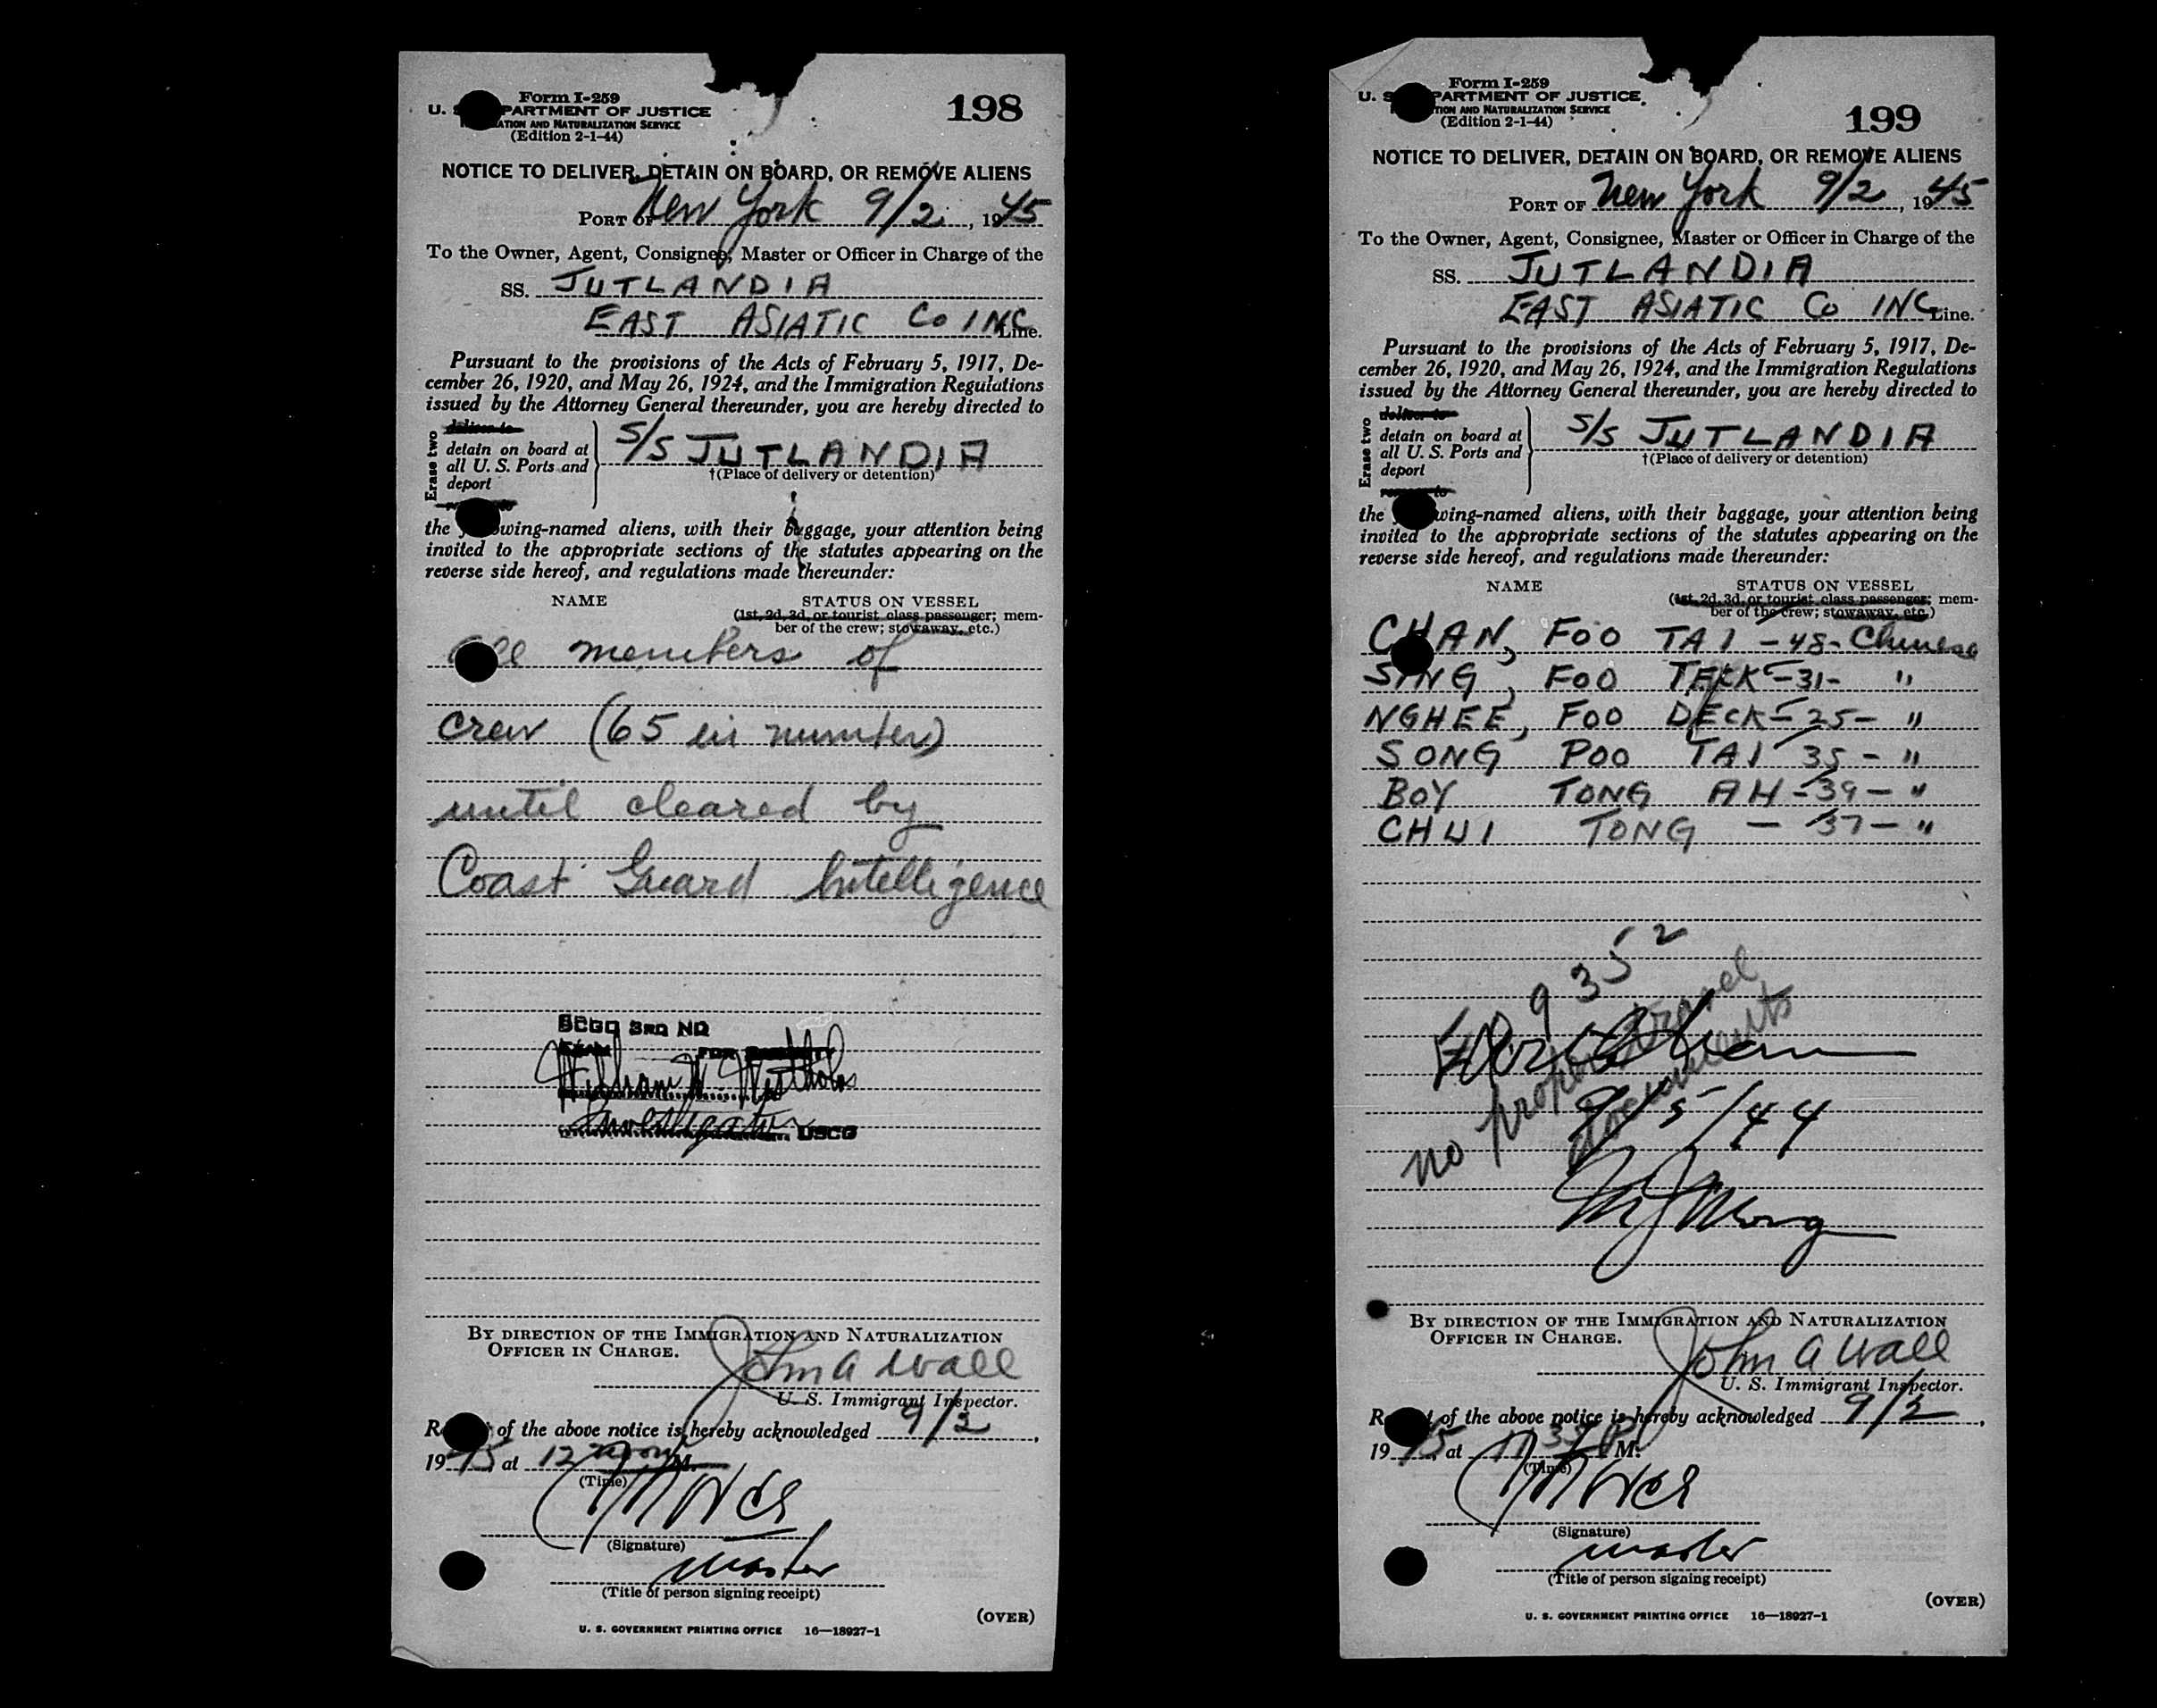 Form I-259
U. S. DEPARTMENT OF JUSTICE
IMMIGRATION AND NATURALIZATION SERVICE
(Edition 2-1-44)
198
NOTICE TO DELIVER, DETAIN ON BOARD, OR REMOVE ALIENS
PORT OF New York 9/2, 1945
To the Owner, Agent, Consignee, Master or Officer in Charge of the
SS. JUTLANDIA
EAST ASIATIC Co INC Line.
Pursuant to the provisions of the Acts of February 5, 1917, De-
cember 26, 1920, and May 26, 1924, and the Immigration Regulations
issued by the Attorney General thereunder, you are hereby directed to
Erase two
deliver to
detain on board at
all U. S. Ports and
deport
remove to
S/S JUTLANDIA
†(Place of delivery or detention)
the following-named aliens, with their baggage, your attention being
invited to the appropriate sections of the statutes appearing on the
reverse side hereof, and regulations made thereunder:
NAME STATUS ON VESSEL
(1st, 2d, 3d, or tourist class passenger; mem-
ber of the crew; stowaway, etc.)
all members of
crew (65 in number)
until cleared by
Coast Guard Intelligence
3RD ND
FOR
Investigator USCG
BY DIRECTION OF THE IMMIGRATION AND NATURALIZATION
OFFICER IN CHARGE.
John A Wall
U. S. Immigrant Inspector.
Receipt of the above notice is hereby acknowledged 9/2,
1945, at 12 noon M.
(Time)
(Signature)
master
(Title of person signing receipt)
(OVER)
U. S. GOVERNMENT PRINTING OFFICE 16—18927-1
Form I-259
U. S. DEPARTMENT OF JUSTICE
IMMIGRATION AND NATURALIZATION SERVICE
(Edition 2-1-44)
199
NOTICE TO DELIVER, DETAIN ON BOARD, OR REMOVE ALIENS
PORT OF New York 9/2, 1945
To the Owner, Agent, Consignee, Master or Officer in Charge of the
SS. JUTLANDIA
EAST ASIATIC Co INC Line.
Pursuant to the provisions of the Acts of February 5, 1917, De-
cember 26, 1920, and May 26, 1924, and the Immigration Regulations
issued by the Attorney General thereunder, you are hereby directed to
Erase two
deliver to
detain on board at
all U. S. Ports and
deport
remove to
S/S JUTLANDIA
†(Place of delivery or detention)
the following-named aliens, with their baggage, your attention being
invited to the appropriate sections of the statutes appearing on the
reverse side hereof, and regulations made thereunder:
NAME STATUS ON VESSEL
(1st, 2d, 3d, or tourist class passenger; mem-
ber of the crew; stowaway, etc.)
CHAN, FOO TAI - 48 - Chinese
SING, FOO TECK - 31 - "
NGHEE, FOO DECK - 25 - "
SONG POO TAI 35 - "
BOY TONG AH - 39 - "
CHUI TONG - 37 - "
9352
no proper travel
documents
9/5/44
BY DIRECTION OF THE IMMIGRATION AND NATURALIZATION
OFFICER IN CHARGE.
John A Wall
U. S. Immigrant Inspector.
Receipt of the above notice is hereby acknowledged 9/2,
1945, at 11 35 M.
(Time)
(Signature)
master
(Title of person signing receipt)
(OVER)
U. S. GOVERNMENT PRINTING OFFICE 16—18927-1